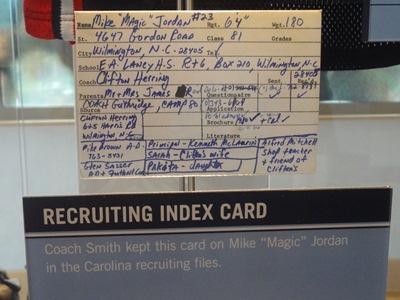 Name Mike "Magic" Jordan #23 Hgt. 6'4" Wgt. 180
St. 4647 Gordon Road Class 81 Grades
City Wilmington, N.C. 28405 Tel.
School E.A. Laney H.S. Rt 6, Box 210, Wilmington, N.C. 28405
Coach Clifton Herring Sent
Parents Mr + Mrs James Questionnaire
Source Coach Guthridge, Camp 80 Application
Brochure + Cal
Literature
Clifton Herring
Wilmington N.C.
Mike Brown A.D.
763-5431
Glen Sasser
Principal - Kenneth McLaurin
Sarah - Clifton's wife
Dakota - daughter
Alfred Mitchell
Shop teacher
+ friend of
Clifton's
RECRUITING INDEX CARD
Coach Smith kept this card on Mike “Magic” Jordan
in the Carolina recruiting files.